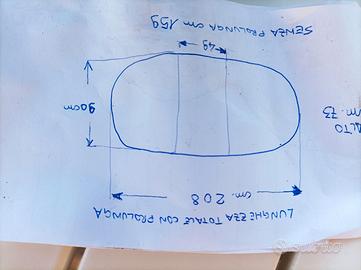 LUNGHEZZA TOTALE CON PROLUNGA
cm. 208
ALTO
m. 73
90cm
49
SENZA PROLUNGA cm 159